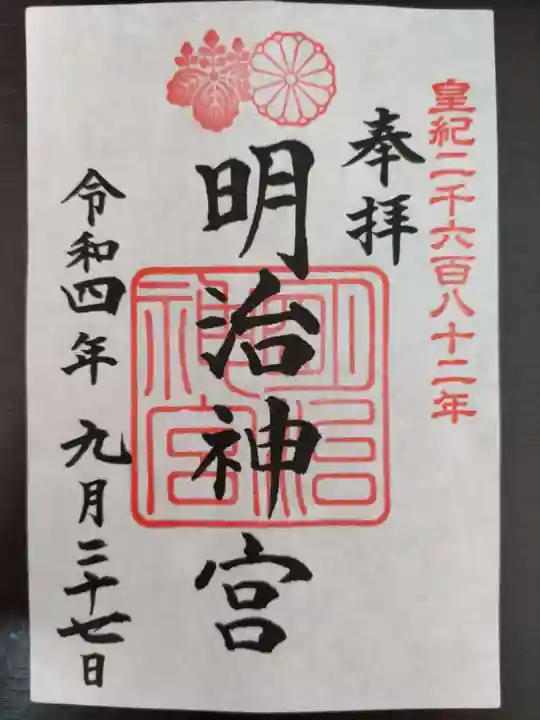 皇紀二千六百八十二年
奉拝
明治神宮
明治神宮
令和四年 九月二十七日